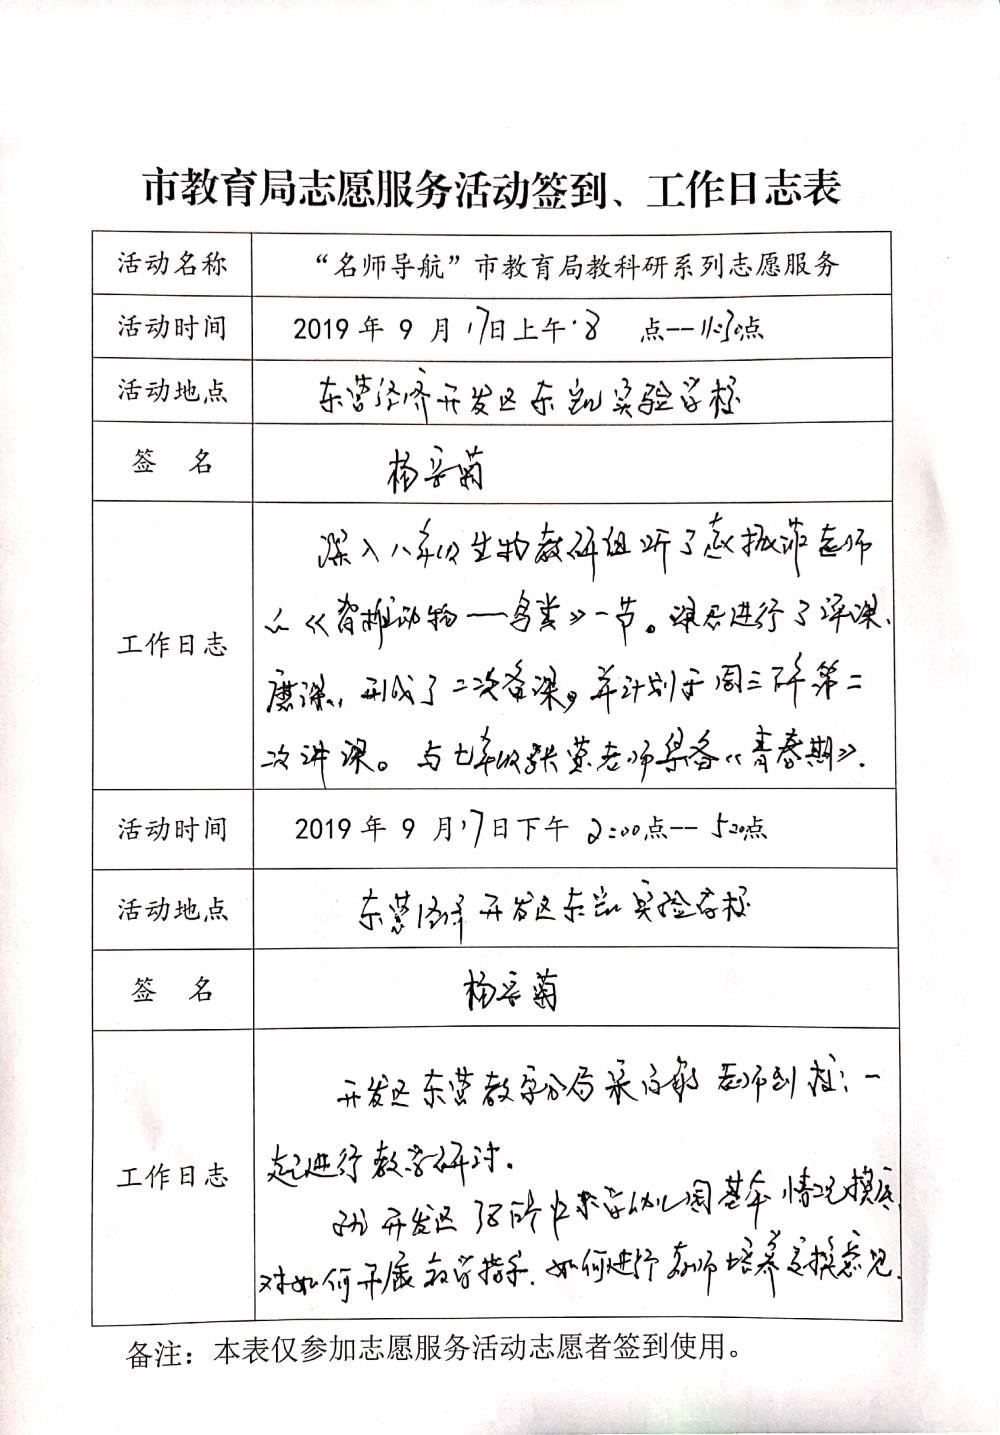 市教育局志愿服务活动签到、工作日志表
活动名称 “名师导航”市教育局教科研系列志愿服务
活动时间 2019 年 9 月 17日上午 8 点--11:30点
活动地点 东营经济开发区东凯实验学校
签 名 杨安菊
深入八年级生物教研组听了赵振萍老师
的《脊椎动物——鸟类》一节。课后进行了评课、
工作日志
磨课,形成了二次备课,并计划于周三研第二
次讲课。与七年级张英老师集备《青春期》.
活动时间 2019 年 9 月 17日下午 2:00点-- 5:20点
活动地点 东营经济开发区东凯实验学校
签 名 杨安菊
开发区东营教学分局 老师到校:一
起进行教学研讨。
工作日志
开发区38所中小学幼儿园基本情况摸底,
对如何开展教学指导.如何进行教师培养交换意见.
备注：本表仅参加志愿服务活动志愿者签到使用。